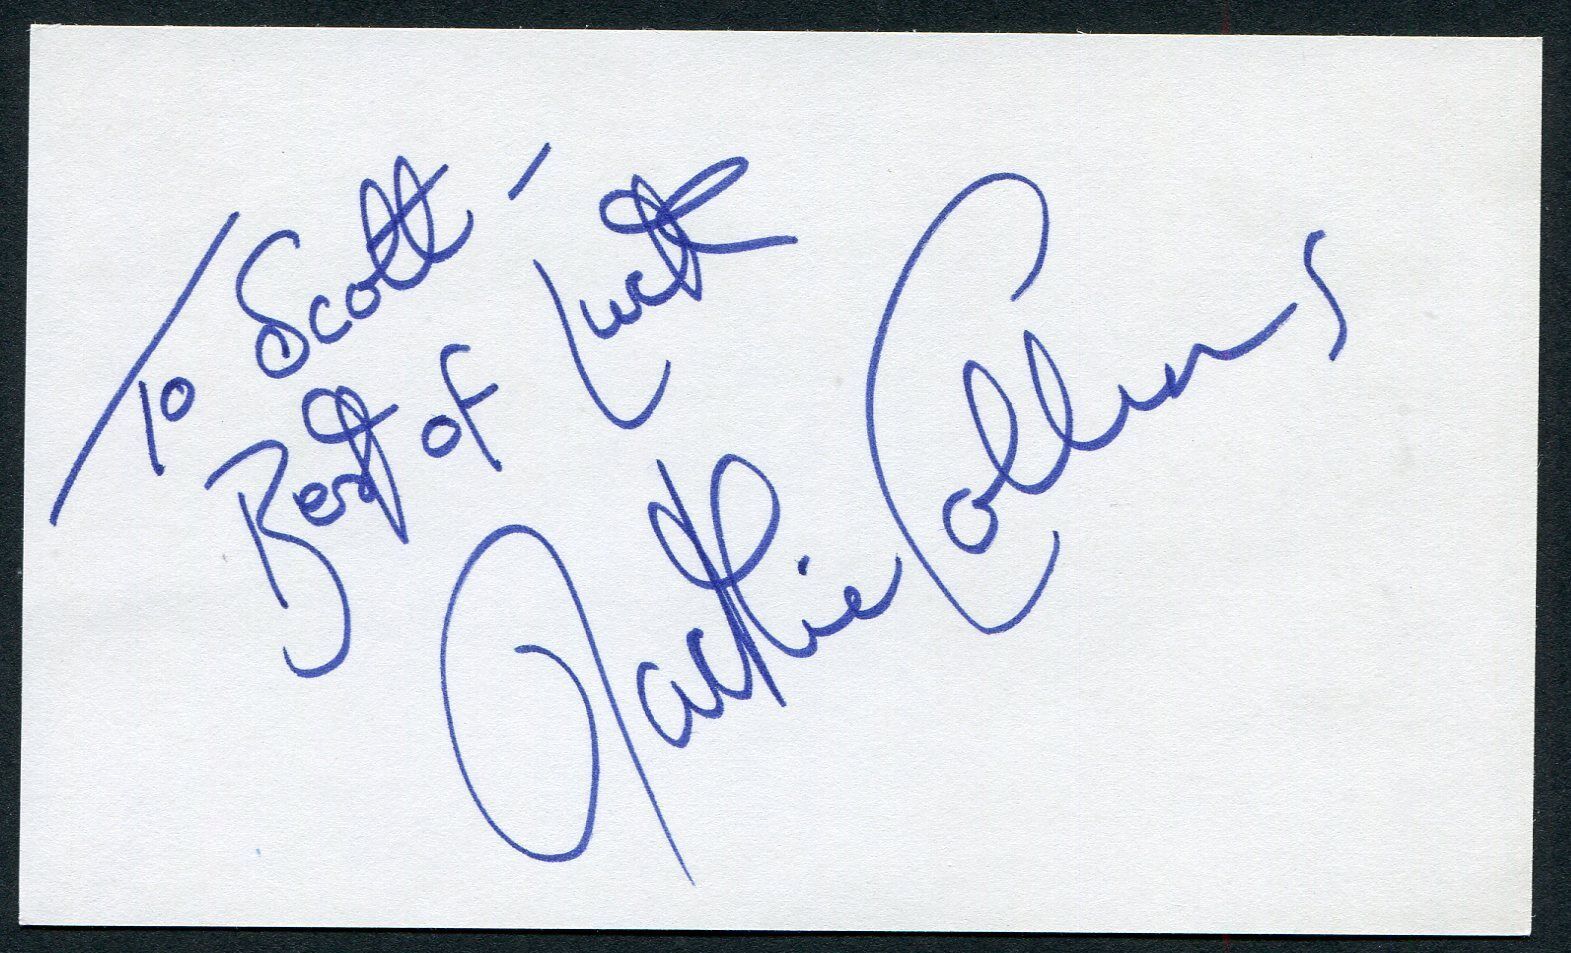 To Scott -
Best of Luck
Jackie Collins